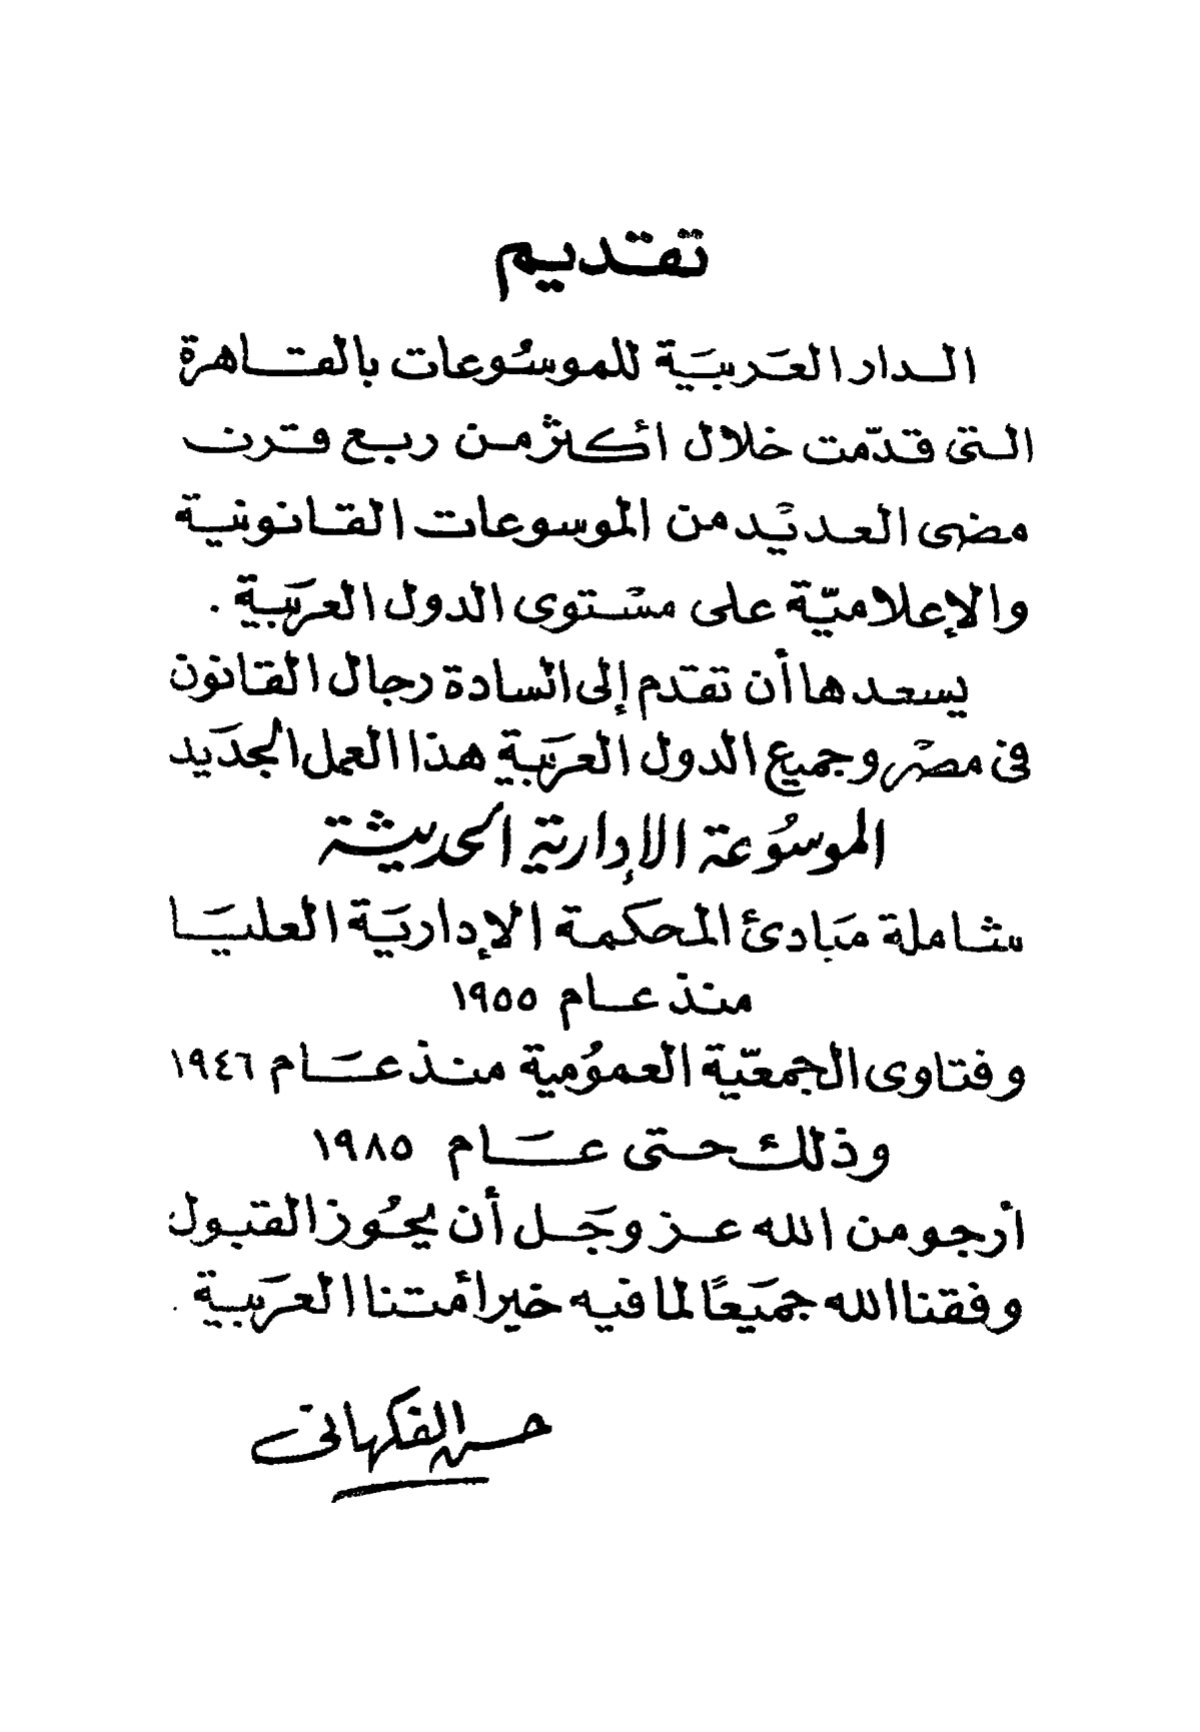 تقديم
الدار العربية للموسوعات بالقاهرة
التى قدّمت خلال أكثر من ربع قرن
مضى العديد من الموسوعات القانونية
والإعلاميّة على مستوى الدول العربية .
يسعدها أن تقدم إلى السادة رجال القانون
فى مصر وجميع الدول العربية هذا العمل الجديد
الموسُوعة الإدارية الحديثة
شاملة مَبادئ المحكمة الإداريَة العليَا
منذ عام ١٩٥٥
وفتاوى الجمعيّة العموُمية منذ عَام ١٩٤٦
وذلك حتى عَام ١٩٨٥
أرجو من الله عز وجَل أن يحُوز القبول
وفقنا الله جميَعًا لما فيه خير أمتنا العرَبية .
حسن الفكهانى